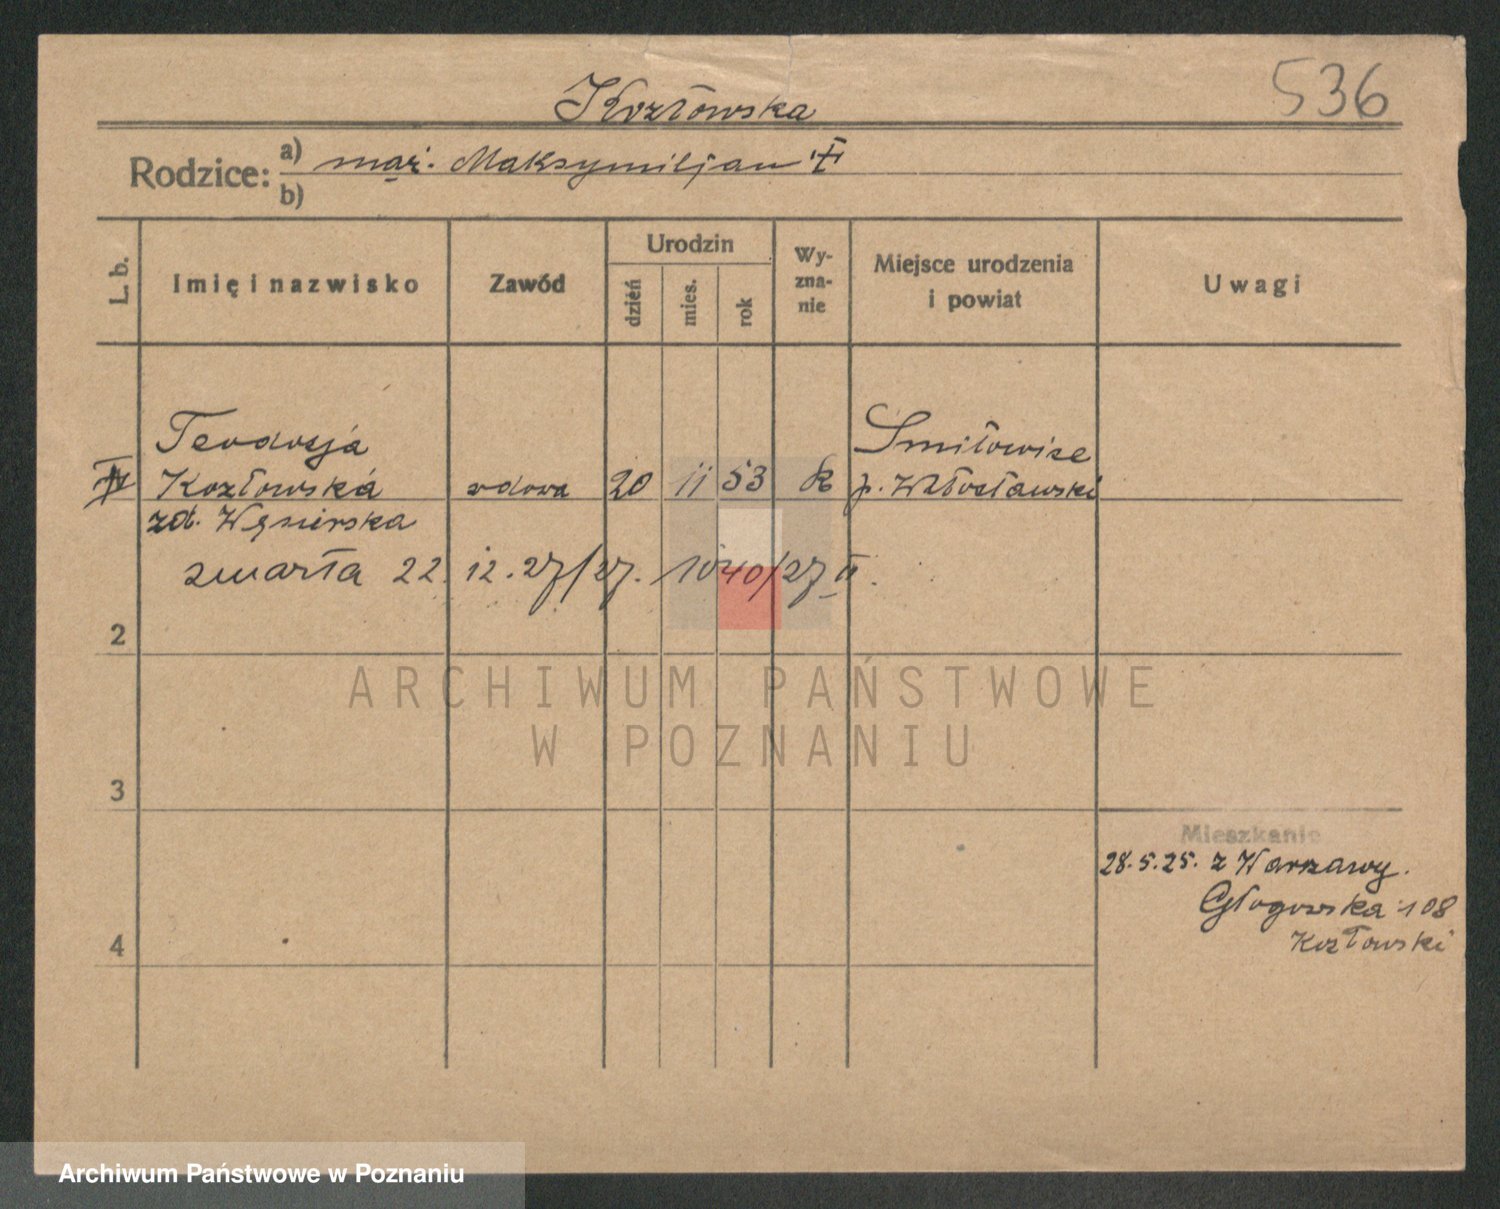 536
Kozłowska
Rodzice: a) mąż. Maksymiljan
b)
L. b.
Imię i nazwisko
Zawód
Urodzin
dzień
mies.
rok
Wy-
zna-
nie
Miejsce urodzenia
i powiat
Uwagi
Teodozja
Kozłowska
wdowa 20 11 53
Smiłowice
p. Włocławski
zd. Węsierska
zmarła 22. 12. 27/27. 1040/27 II.
2
3
4
Mieszkanie
28.5.25. z Warszawy.
Głogowska 108
Kozłowski
ARCHIWUM PAŃSTWOWE
W POZNANIU
Archiwum Państwowe w Poznaniu